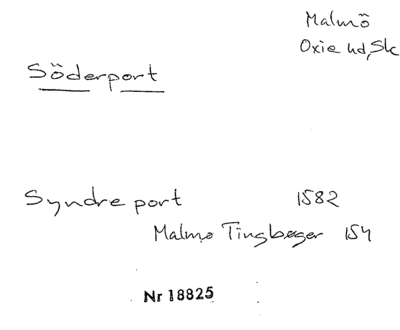 Malmö
Oxie hd, Sk
Söderport
Syndre port 1582
Malmø Tingbøger 154
Nr 18825